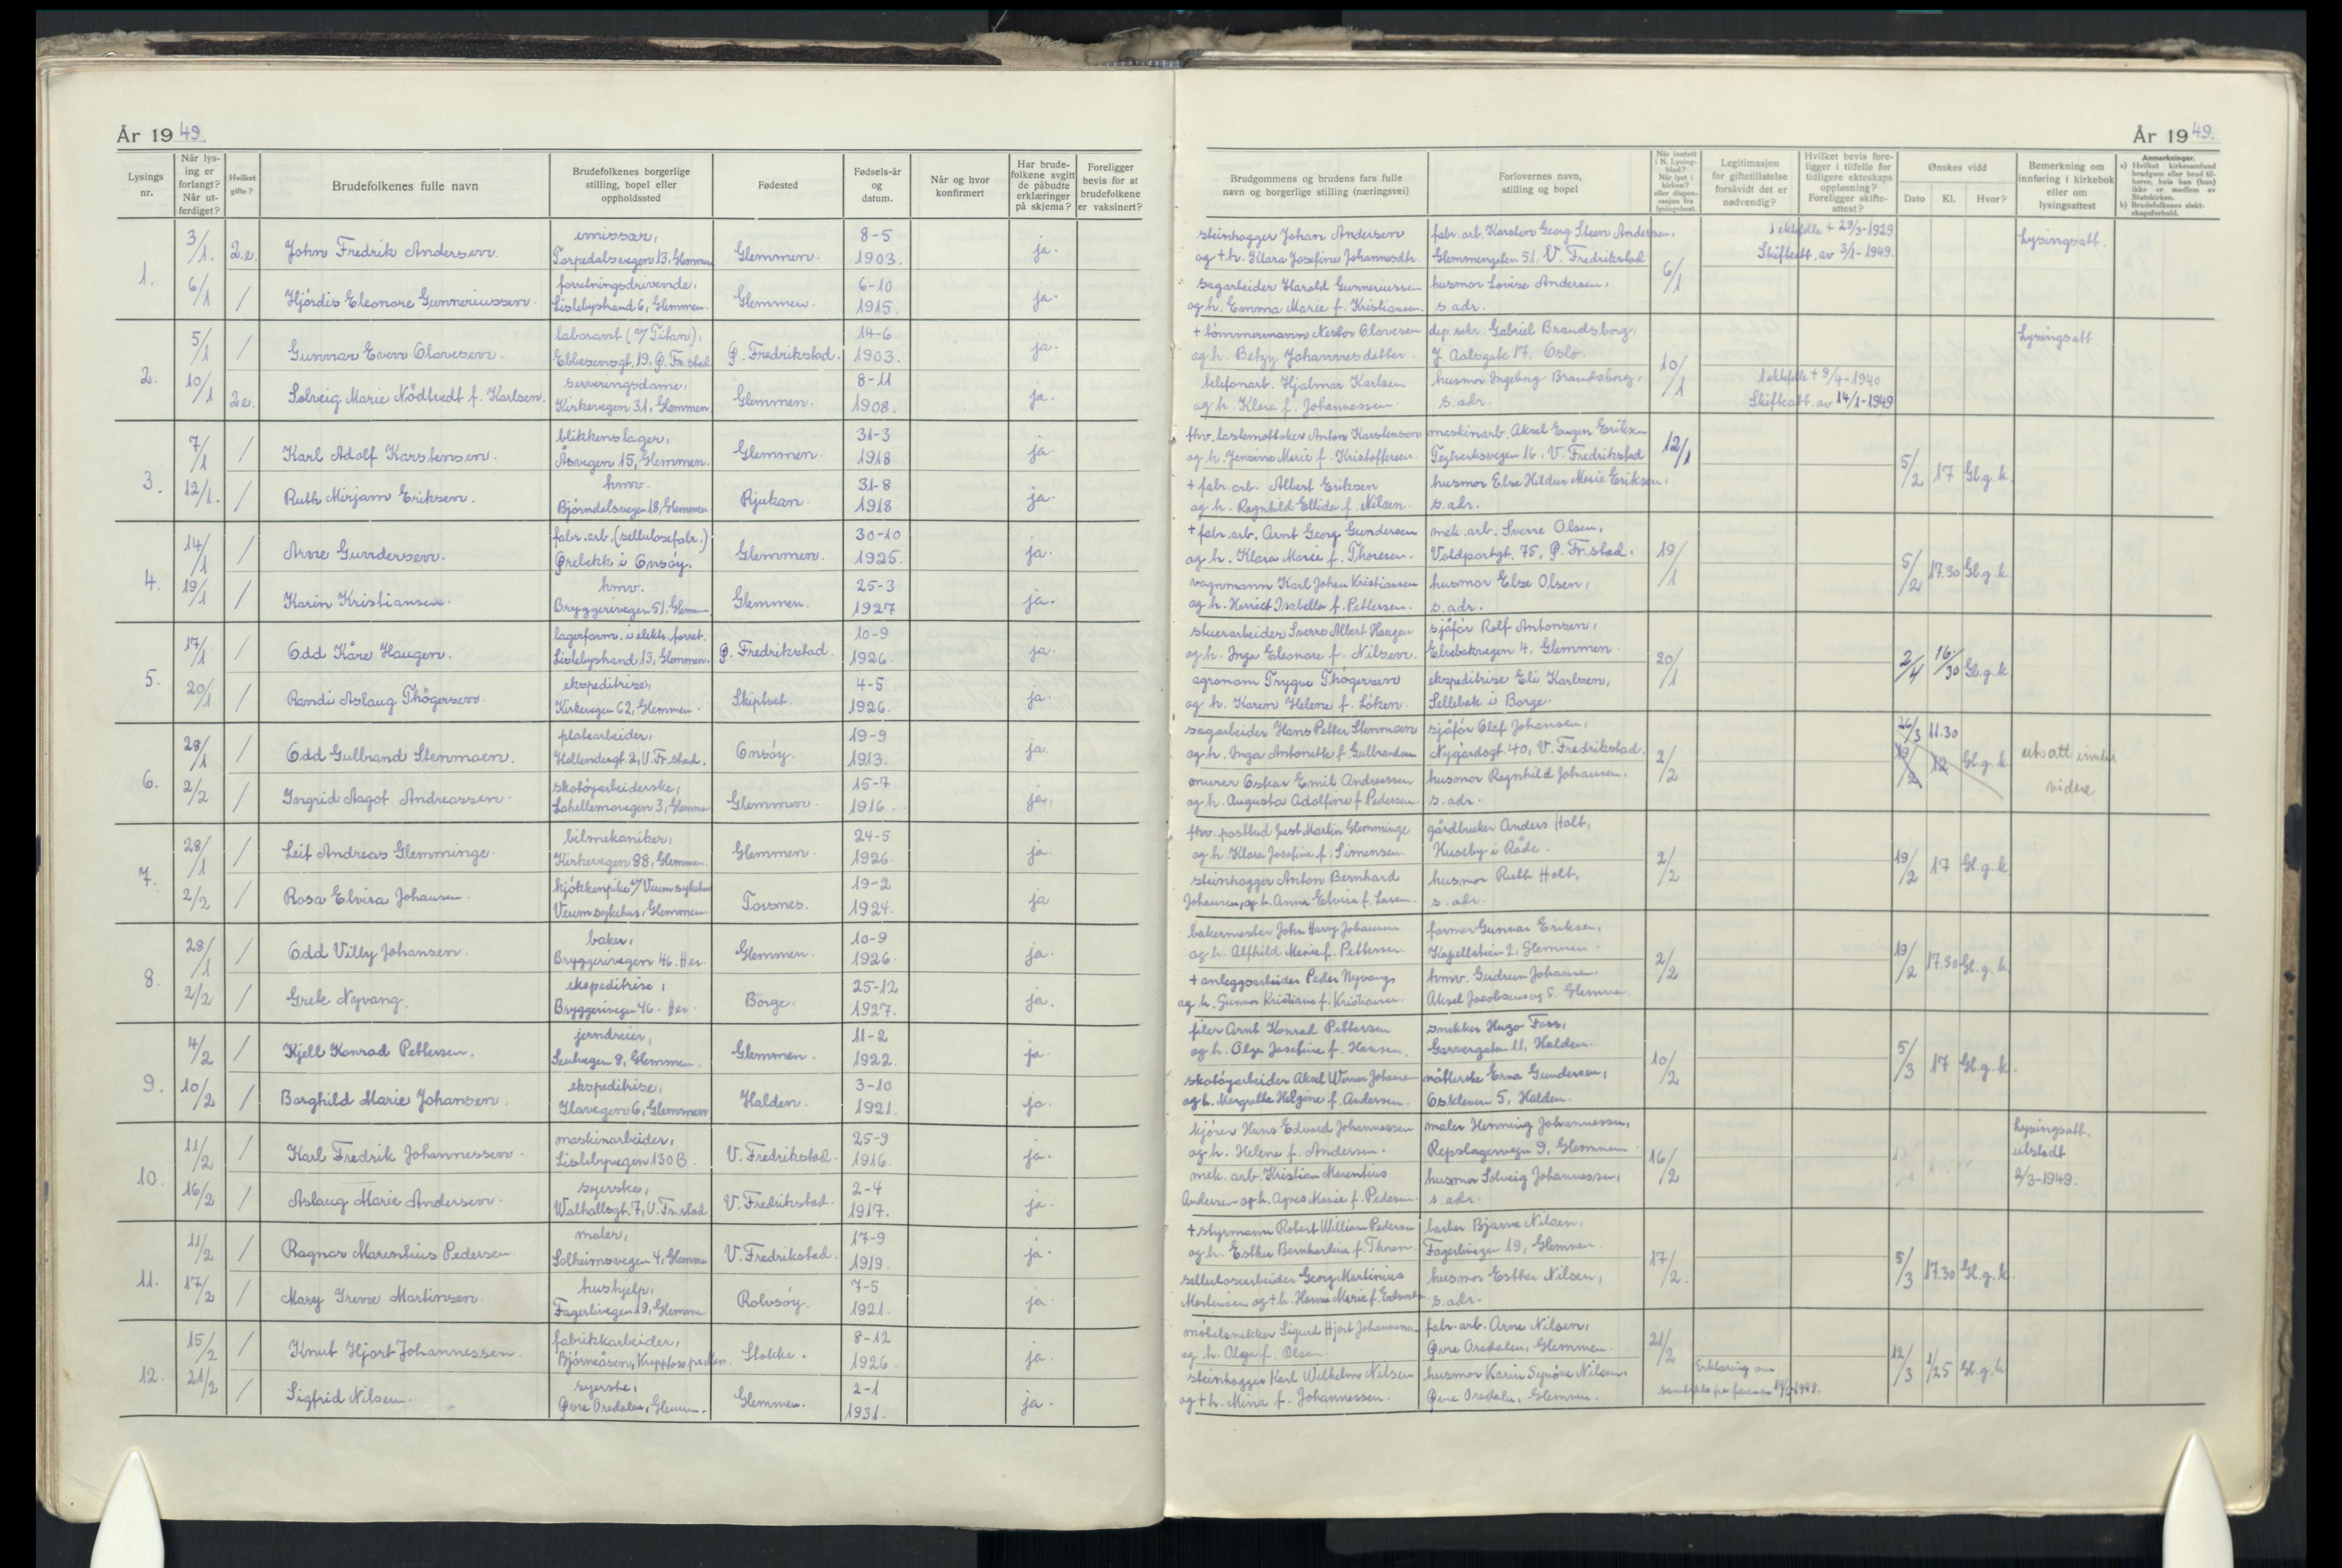 År 1949.
Lysings nr.
Når lysing er forlangt? Når utferdiget?
Hvilket gifte?
Brudefolkenes fulle navn
Brudefolkenes borgerlige stilling, bopel eller oppholdssted
Fødested
Fødsels-år og datum.
Når og hvor konfirmert
Har brudefolkene avgitt de påbudte erklæringer på skjema?
Foreligger bevis for at brudefolkene er vaksinert?
1.
3/1. 2.e. John Fredrik Andersen. emissær, Torpedalsvegen 13, Glemmen Glemmen. 8-5 1903. ja.
6/1 / Hjördis Eleonore Gunneriussen. forretningsdrivende, Lislebystrand 6, Glemmen. Glemmen. 6-10 1915. ja.
2.
5/1 / Gunnar Even Olavesen. laborant (a/ Titan), Ebbesensgt. 19, Ø. Fr.stad Ø. Fredrikstad. 14-6 1903. ja.
10/1 2e. Solveig Marie Nödtvedt f. Karlsen. serveringsdame, Kirkevegen 31, Glemmen. Glemmen. 8-11 1908. ja.
3.
7/1 / Karl Adolf Karstensen. blikkenslager, Åsvegen 15, Glemmen. Glemmen. 31-3 1918 ja.
12/1. / Ruth Mirjam Eriksen. hmv. Bjørndalsvegen 18, Glemmen Rjukan. 31-8 1918 ja.
4.
14/1 / Arne Gundersen. fabr. arb. (sellulosefabr.) Ørebekk i Onsøy. Glemmen. 30-10 1925. ja.
19/1 / Karin Kristiansen. hmv. Bryggerivegen 51, Glemmen Glemmen. 25-3 1927 ja.
5.
17/1 / Odd Kåre Haugen. lagerform. i elektr. forret. Lislebystrand 13, Glemmen. Ø. Fredrikstad. 10-9 1926. ja
20/1 / Randi Aslaug Thögersen. ekspeditrise, Kirkevegen 62, Glemmen. Skiptvet. 4-5 1926. ja
6.
28/1 / Odd Gulbrand Stenmoen. platearbeider, Hollendergt. 2, V. Fr.stad. Onsöy. 19-9 1913. ja.
2/2 / Ingrid Aagot Andreassen. skotöyarbeiderske, Lahellemovegen 3, Glemmen Glemmen. 15-7 1916. ja.
7.
28/1 / Leif Andreas Glemminge. bilmekaniker, Kirkevegen 88, Glemmen. Glemmen. 24-5 1926. ja.
2/2 / Rosa Elvira Johansen. kjökkenpike v/ Veum sykehus Veum sykehus, Glemmen Torsnes. 19-2 1924. ja
8.
28/1 / Odd Villy Johansen. baker, Bryggerivegen 46. Her Glemmen. 10-9 1926. ja.
2/2 / Grete Nyvang. ekspeditrise, Bryggerivegen 46. Her Borge. 25-12 1927. ja.
9.
4/2 / Kjell Konrad Pettersen. jerndreier, 8, Glemmen. Glemmen. 11-2 1922. ja.
10/2 / Borghild Marie Johansen. ekspeditrise, 6, Glemmen Halden. 3-10 1921. ja.
10.
11/2 / Karl Fredrik Johannessen. maskinarbeider, Lislebyvegen 130B. V. Fredrikstad. 25-9 1916. ja.
16/2 / Aslaug Marie Andersen. syerske, Walhallsgt. 7, V. Fr.stad V. Fredrikstad. 2-4 1917. ja.
11.
11/2 / Ragnar Marentius Pedersen. maler, Solheimsvegen 4, Glemmen V. Fredrikstad. 17-9 1919. ja.
17/2 / Mary Irene Martinsen. hushjelp, Fagerlivegen 19, Glemmen. Rolvsöy. 7-5 1921. ja.
12.
15/2 / Knut Hjort Johannessen. fabrikkarbeider, Björneåsen, Stokke. 8-12 1926. ja.
21/2 / Sigfrid Nilsen. syerske, Øvre Oredalen, Glemmen. Glemmen. 2-1 1931. ja.
År 1949.
Brudgommens og brudens fars fulle navn og borgerlige stilling (næringsvei)
Forlovernes navn, stilling og bopel
Når inntatt i N. Lysingblad? Når lyst i kirken? eller dispensasjon fra lysingsbest.
Legitimasjon for giftetillatelse forsåvidt det er nødvendig?
Hvilket bevis foreligger i tilfelle for tidligere ekteskaps oppløsning? Foreligger skifteattest?
Ønskes vidd
Dato Kl. Hvor?
Bemerkning om innføring i kirkebok eller om lysingsattest
Anmerkninger.
a) Hvilket kirkesamfund brudgom eller brud tilhører, hvis han (hun) ikke er medlem av Statskirken.
b) Brudefolkenes slektskapsforhold.
steinhogger Johan Andersen fabr. arb. Karsten Georg Steen Andersen, 1 ektefelle + 29/3-1929 Lysingsatt.
og + h. Klara Josefine Johannesdtr. Glemmengaten 51, V. Fredrikstad 6/1 Skifteatt. av 3/1-1949.
sagarbeider Harald Gunneriussen husmor Lovise Andersen,
og h. Emma Marie f. Kristiansen. s. adr.
+ tömmermann Nestor Olavesen dep. sekr. Gabriel Brandsborg, Lysingsatt
og h. Betzy Johannesdatter. J. Aalsgate 17, Oslo. 10/1
telefonarb. Hjalmar Karlsen husmor Ingeborg Brandsborg, 1 ektefelle + 9/4-1940
og h. Klara f. Johannessen. s. adr. Skifteatt. av 14/1-1949
fhv. lastemottaker Anton Karstensen maskinarb. Aksel Eugen Eriksen 12/1
og h. Jensine Marie f. Kristoffersen. Teglverksvegen 16, V. Fredrikstad 5/2 17 Gl.g.k.
+ fabr. arb. Albert Eriksen husmor Else Hildur Marie Eriksen,
og h. Ragnhild Ellida f. Nilsen. s. adr.
+ fabr. arb. Arnt Georg Gundersen mek. arb. Sverre Olsen,
og h. Klara Marie f. Thoresen. Voldportgt. 75, Ø. Fr.stad. 19/1 5/2 17.30 Gl.g.k.
vognmann Karl Johan Kristiansen husmor Else Olsen,
og h. Harriet Isabella f. Pettersen. s. adr.
stuerarbeider Sverre Albert Haugen sjåför Rolf Antonsen,
og h. Inga Eleonore f. Nilsen. Elvebakvegen 4, Glemmen. 20/1 2/4 16/30 Gl.g.k.
agronom Trygve Thögersen ekspeditrise Eli Karlsen,
og h. Karen Helene f. Löken. Sellebak i Borge.
sagarbeider Hans Petter Stenmoen sjåför Olaf Johansen, 26/3 11.30
og h. Inga Antonette f. Gulbrandsen Nygårdsgt. 40, V. Fredrikstad. 2/2 19/2 12 Gl.g.k. utsatt inntil videre
murer Oskar Emil Andreassen husmor Ragnhild Johansen,
og h. Augusta Adolfine f. Pedersen. s. adr.
fhv. postbud Just Martin Glemminge gårdbruker Anders Holt,
og h. Klara Josefine f. Simensen. Huseby i Råde. 2/2 19/2 17 Gl.g.k.
steinhogger Anton Bernhard husmor Ruth Holt,
Johansen, og h. Anna Elvira f. Larsen. s. adr.
bakermester John Harry Johansen former Gunnar Eriksen,
og h. Alfhild Marie f. Pettersen. 2, Glemmen. 2/2 19/2 17.30 Gl.g.k.
+ anleggsarbeider Peder Nyvang, hmv. Gudrun Johansen.
og h. Gunnor Kristiane f. Kristiansen. Aksel Jacobsensvg 5. Glemmen.
filer Arnt Konrad Pettersen snekker Hugo Foss,
og h. Olga Josefine f. Hansen. Garvergaten 11, Halden. 10/2 5/3 17 Gl.g.k.
skotöyarbeider Aksel Werner Johansen nåtlerske Erna Gundersen,
og h. Margrethe Helgine f. Andersen. Oskleven 5, Halden.
kjörer Hans Edvard Johannessen maler Henning Johannessen, Lysingsatt.
og h. Helene f. Andersen. Repslagervegen 9, Glemmen 16/2 utstedt
mek. arb. Kristian Marentius husmor Solveig Johannessen, 2/3-1949.
Andersen og h. Agnes Marie f. Pedersen. s. adr.
+ styrmann Robert William Pedersen barber Bjarne Nilsen,
og h. Esther Bernhardine f. Thoresen. Fagerlivegen 19, Glemmen. 17/2. 5/3 17.30 Gl.g.k.
sellulosearbeider Georg Martinius husmor Esther Nilsen,
Martinsen og + h. Hanna Marie f. s. adr.
möbelsnekker Sigurd Hjort Johannessen fabr. arb. Arne Nilsen,
og h. Olga f. Olsen. Øvre Oredalen, Glemmen. 21/2 12/3 1/25 Gl.g.k
steinhogger Karl Wilhelm Nilsen husmor Karin Synöve Nilsen, Erklæring om
og + h. Mina f. Johannessen. Øvre Oredalen, Glemmen. samtykke fra